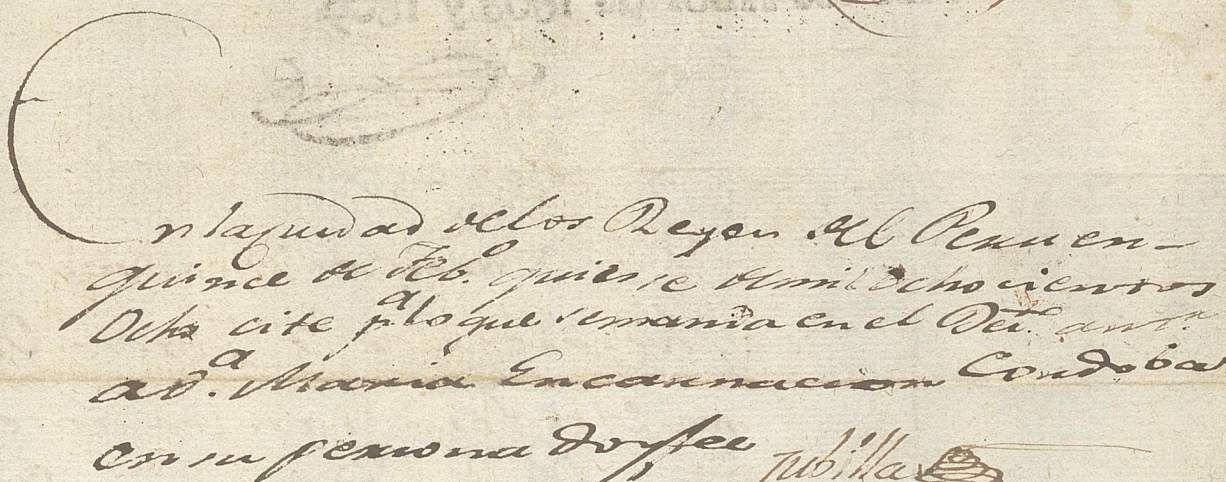 En la ciudad de los Reyes del Peru en
quince de Feb.º de mil ochocientos
Ocho cite p.ª lo que se manda en el Dec.to ant.r
a D.ª Maria Encarnacion Cordoba
en su persona doy fee
Jubilla